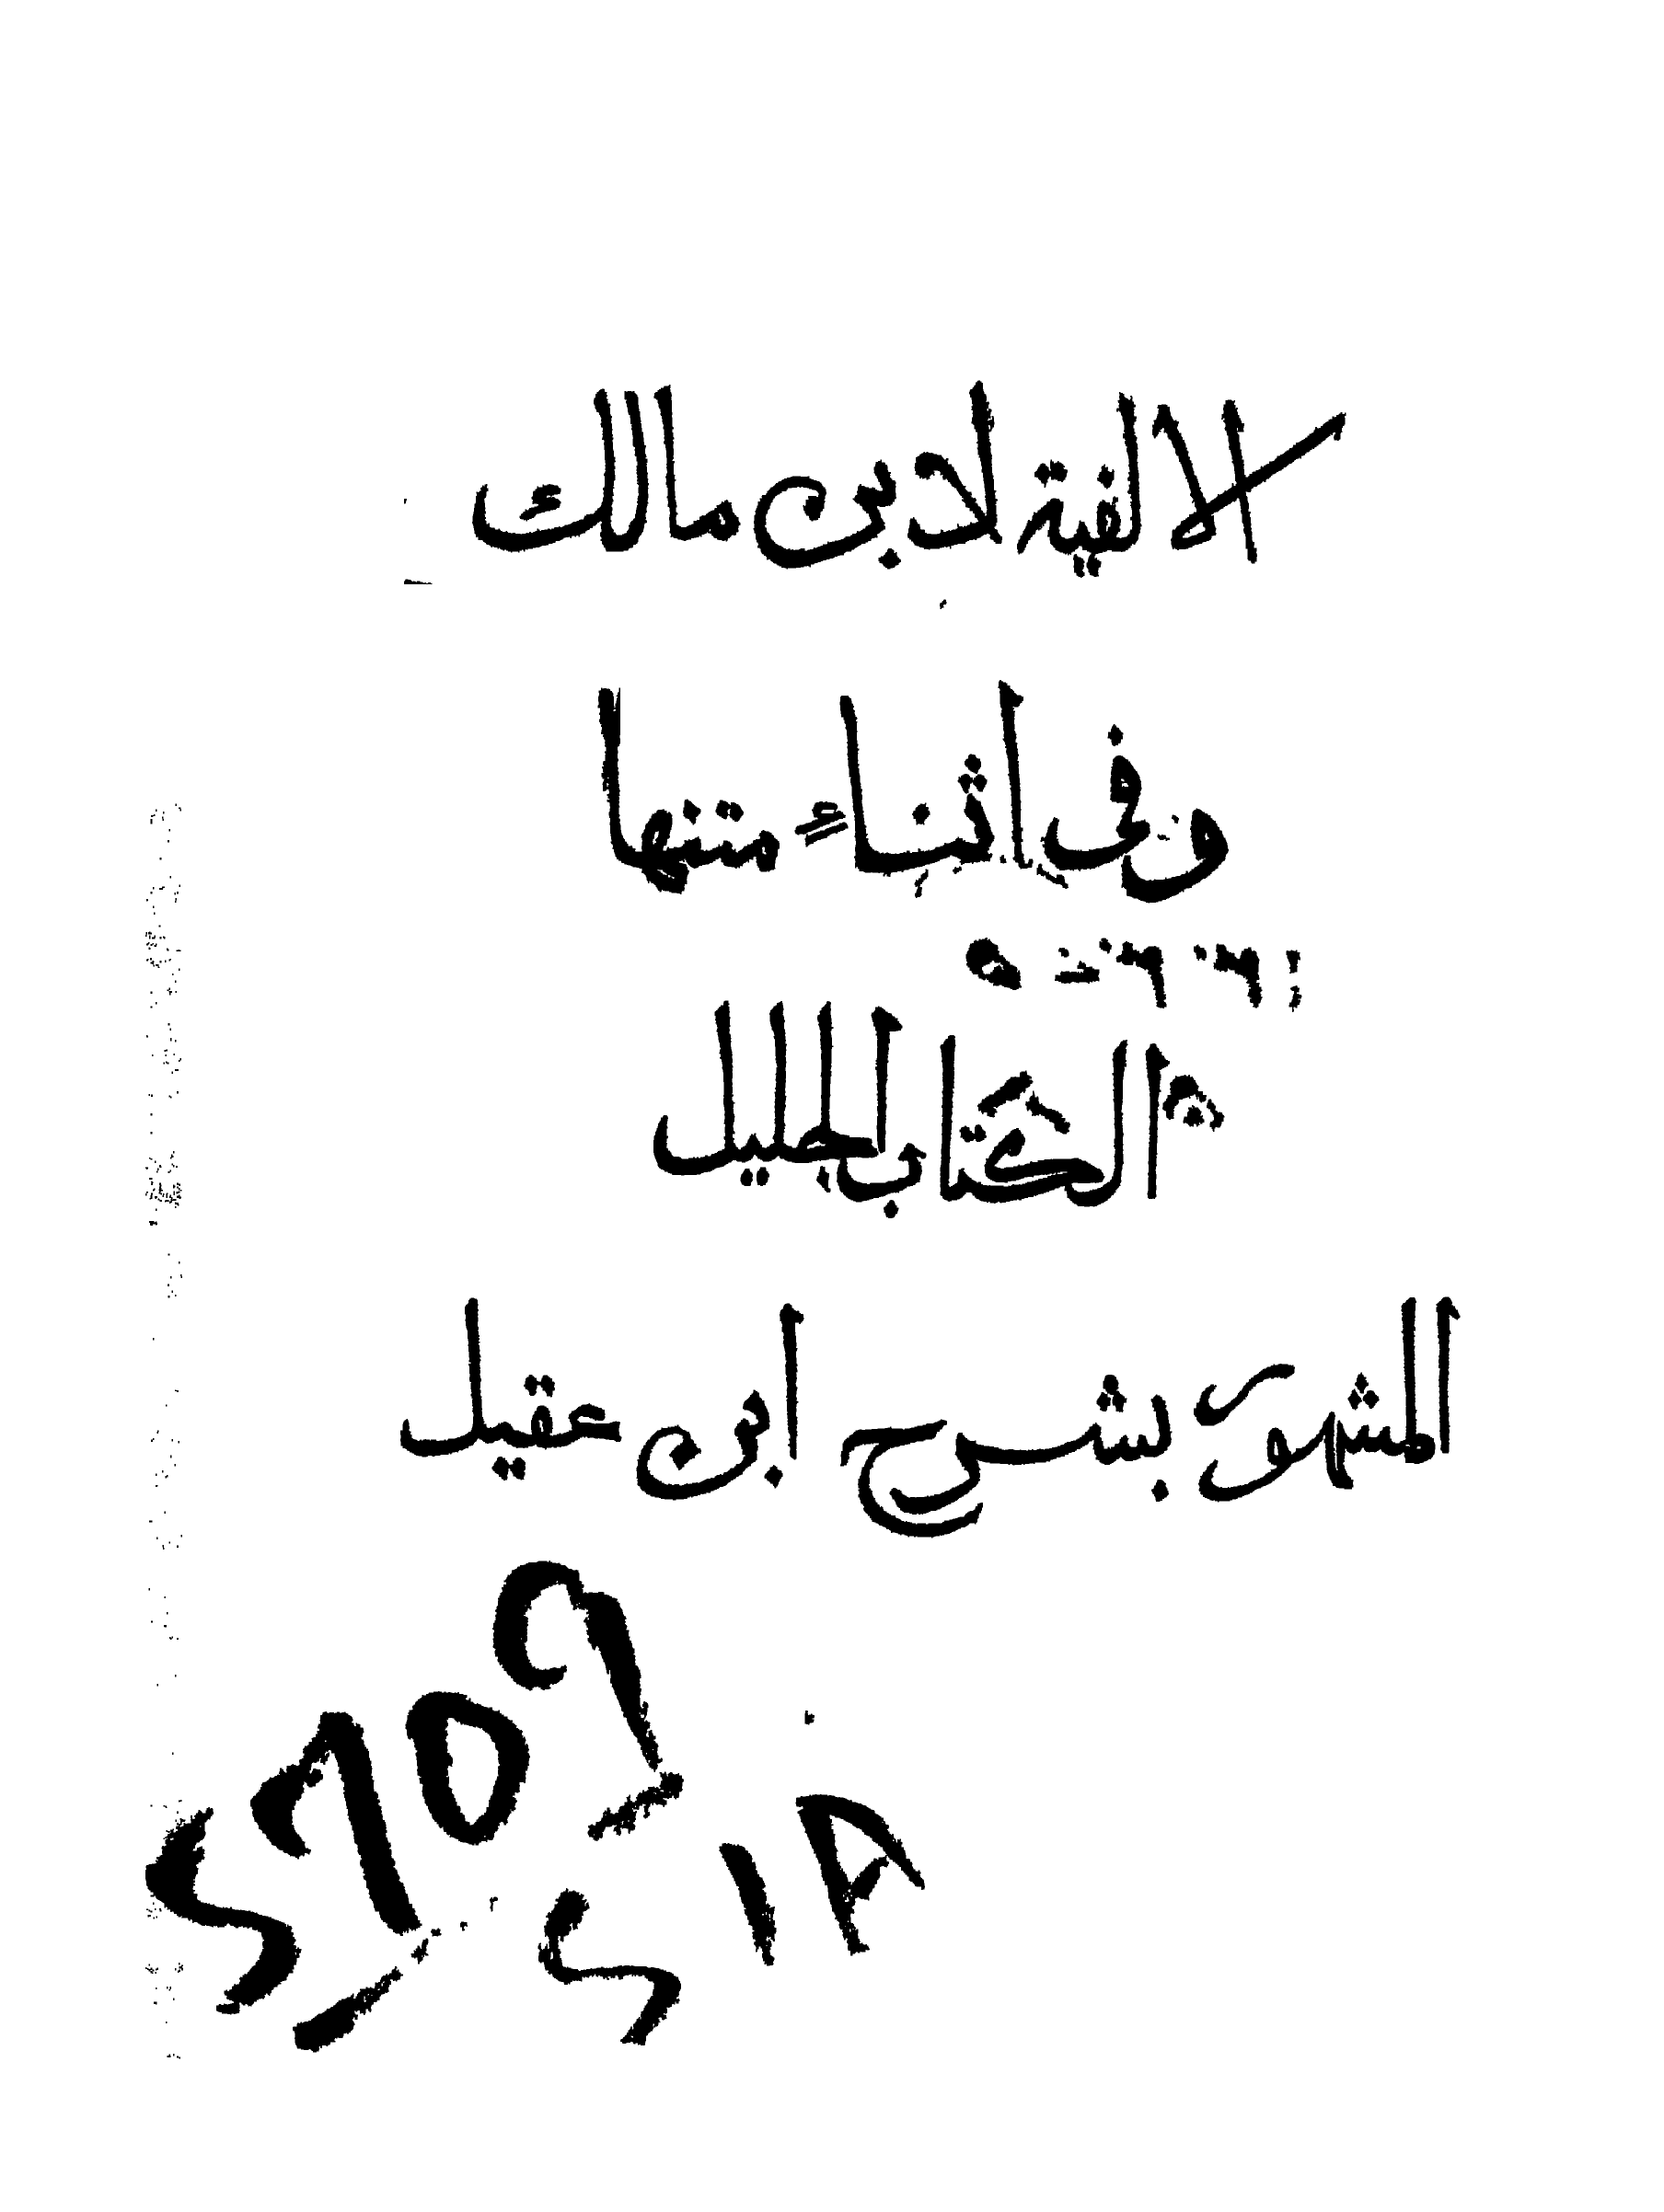 الالفية لابن مالك
وفي اثناء متنها
الكتاب الجليل
المشهور بشرح ابن عقيل